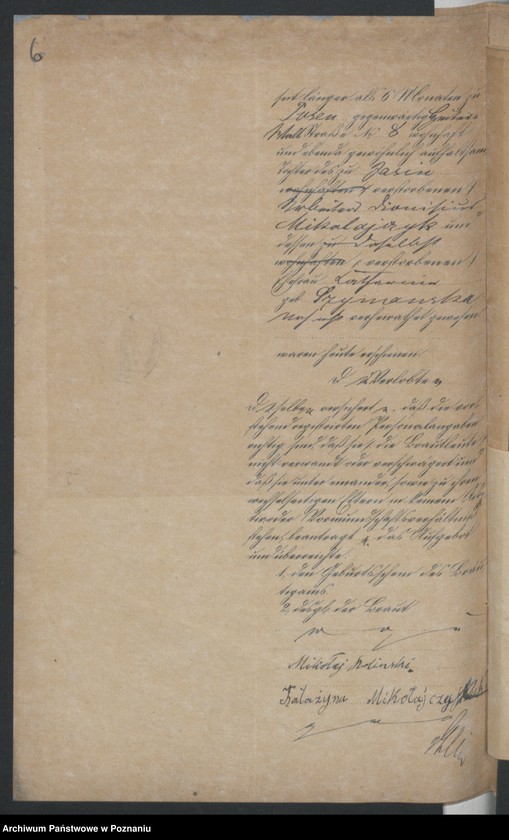 6
seit länger als 6 Monaten zu
Posen gegenwärtig
Wall Straße № 8 wohnhaft
und ebenda gewöhnlich aufhaltsam
Tochter des zu Zasin
wohnhaften (verstorbenen)
Arbeiters Dionisius
Mikolajczyk und
dessen zu daselbst
wohnhaften (verstorbenen)
Ehefrau Catharina
geb. Szymanska
noch nicht verheirathet gewesen
waren heute erschienen
D ie Verlobte n
D ieselben versichert n, daß die vor-
stehend registrirten Personalangaben
richtig sind, daß sie, die Brautleute
nicht verwandt oder verschwägert und
daß sie unter einander, sowie zu ihren
wechselseitigen Eltern in keinem
Vormundschaftsverhältniß
stehen, beantragt n. das Aufgebot
und überreichte.
1, den Geburtsschein des Bräu-
tigams.
2, desgl. der Braut
v g u
Mikołaj
Katażyna Mikołajczyk
Archiwum Państwowe w Poznaniu